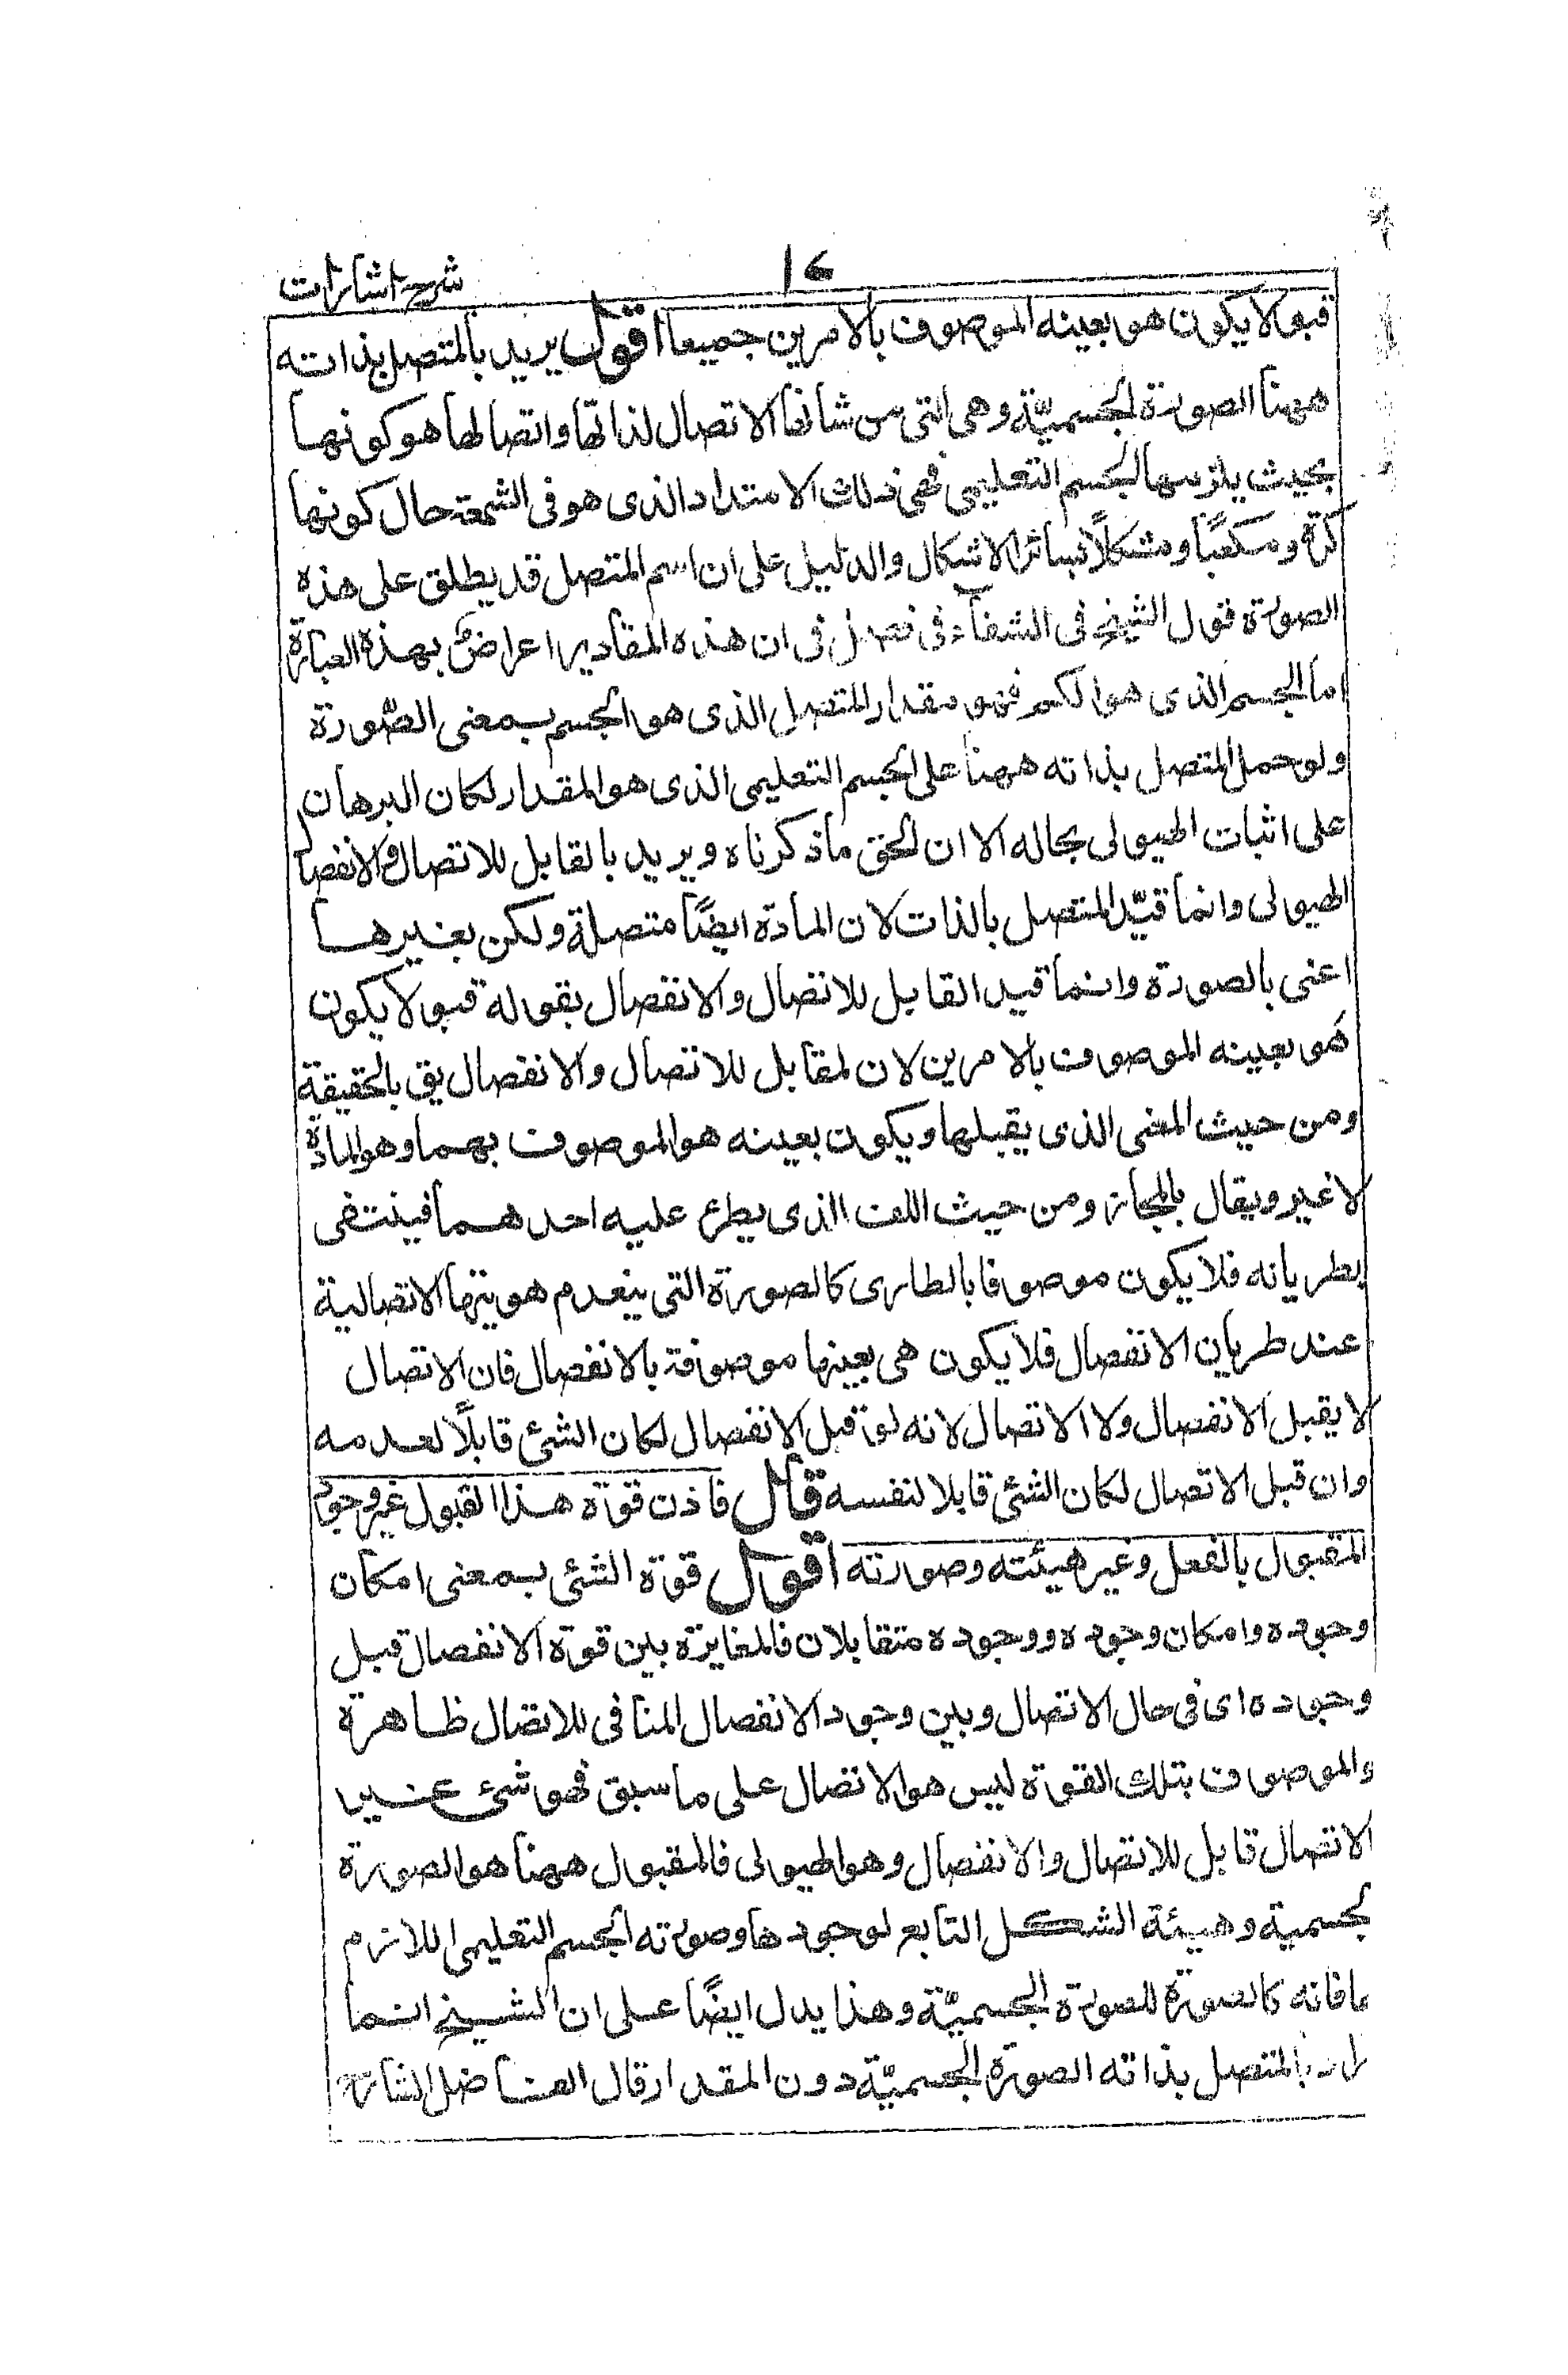 شرح اشارات
١٤
قبولا يكون هو بعينه الموصوف بالامرين جميعا اقول يريد بالمتصل بذاته
ههنا الصورة الجسميّة وهى التى من شانها الاتصال لذاتها واتصالها هو كونها
بحيث يلزمها الجسم التعليمى فهى ذلك الامتداد الذى هو فى الشمعة حال كونها
كرة ومكعبًا ومشكلاً بسائر الاشكال والدليل على ان اسم المتصل قد يطلق على هذه
الصورة قول الشيخ فى الشفاء فى فصل فى ان هذه المقادير اعراض بهذه العبارة
اما الجسم الذى هو الكم فهو مقدار المتصل الذى هو الجسم بمعنى الصّورة
ولو حمل المتصل بذاته ههنا على الجسم التعليمى الذى هو المقدار لكان البرهان
على اثبات الهيولى بحاله الا ان الحق ماذكرناه ويريد بالقابل للاتصال والانفصال
الهيولى وانما قيّد المتصل بالذات لان المادة ايضًا متصلة ولكن بغيرها
اعنى بالصورة وانما قيد القابل للاتصال والانفصال بقوله قبولا يكون
هو بعينه الموصوف بالامرين لان لمقابل للاتصال والانفصال يق بالحقيقة
ومن حيث المعنى الذى يقبلها ويكون بعينه هو الموصوف بهما وهو المادة
لا غير ويقال بالمجاز ومن حيث اللف الذى يطرء عليه احدهما فينتفى
بطريانه فلا يكون موصوفا بالطارى كالصورة التى ينعدم هويتها الاتصالية
عند طريان الانفصال فلا يكون هى بعينها موصوفة بالانفصال فان الاتصال
لا يقبل الانفصال ولا الاتصال لانه لو قبل الانفصال لكان الشئ قابلاً لعدمه
وان قبل الاتصال لكان الشئ قابلا لنفسه قال فاذن قوة هذا القبول غير وجود
المقبول بالفعل وغير هيئته وصورته اقول قوة الشئ بمعنى امكان
وجوده وامكان وجوده ووجوده متقابلان فالمغايرة بين قوة الانفصال قبل
وجوده اى فى حال الاتصال وبين وجود الانفصال المنافى للاتصال ظاهرة
والموصوف بتلك القوة ليس هو الاتصال على ما سبق فهو شئ غير
الاتصال قابل للاتصال والانفصال وهو الهيولى فالمقبول ههنا هو الصورة
لجسمية وهيئة الشكل التابع لوجودها وصورته الجسم التعليمى اللازم
ها فانه كالصورة للصورة الجسميّة وهذا يدل ايضًا على ان الشيخ انما
راد بالمتصل بذاته الصورة الجسميّة دون المقدار قال الفاضل الشارح